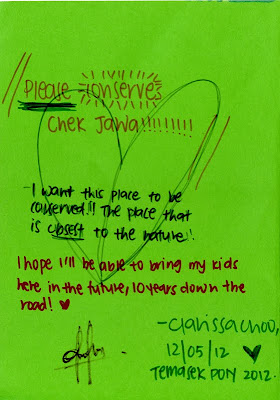 Please conserve
Chek Jawa!!!!!!!!!!
I want this place to be
conserved!!! The place that
is closest to the nature!!
I hope I'll be able to bring my kids
here in the future, 10 years down the
road! ♥
-Clarissa Choo,
12/05/12 ♥
TEMASEK POLY 2012.